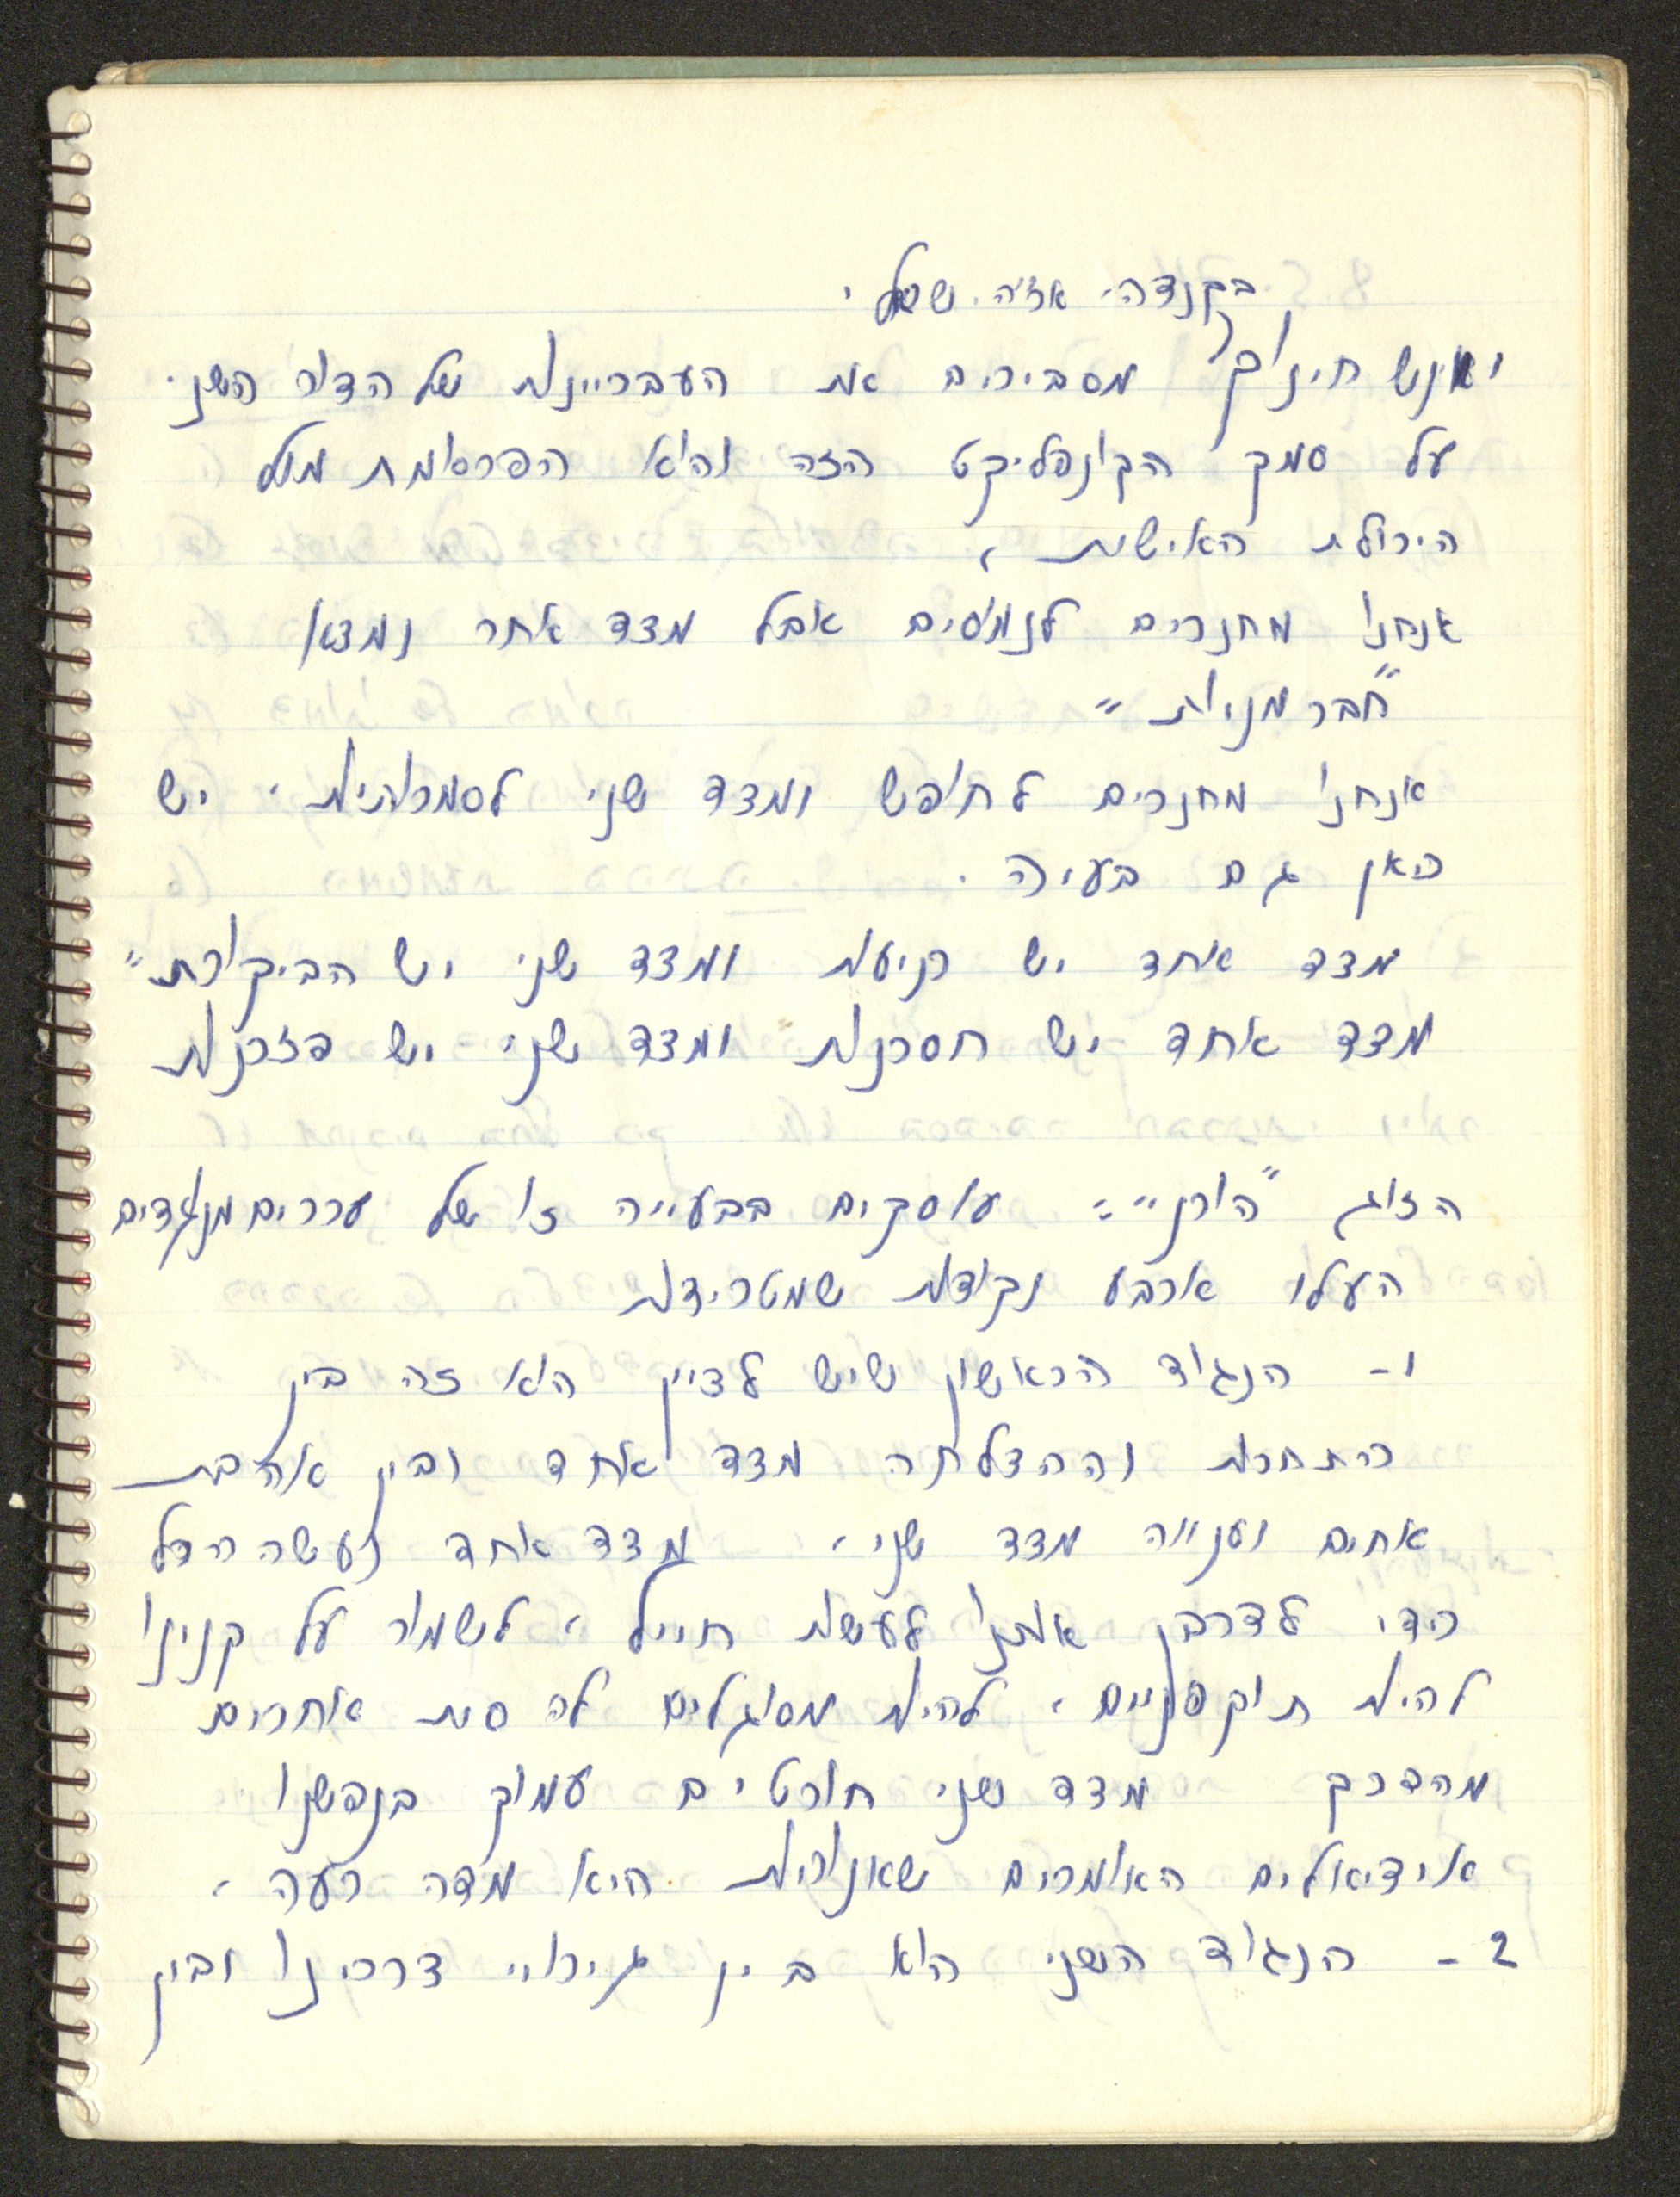 בקנדה. ארה. ושאל.
ואנש חינוך מסבירים את העבריינות של הדור השני
על סמך הקונפליקט הזה והיא הפרסומת מול
היכולת האישית,
אנחנו מחנכים לנמוסים אבל מצד אחר נמצא
"חברמניות"
אנחנו מחנכים לחופש ומצד שני לסמכותיות. יש
כאן גם בעיה.
מצד אחד יש כניעות ומצד שני יש הביקורת"
מצד אחד יש חסכנות ומצד שני יש פזרנות
הזוג "הורן": עוסקים בבעייה זו של ערכים מנוגדים
העלו ארבע נקודות שמטרידות
1- הנגוד הראשון שיש לציין הוא זה בין
התחרות וההצלחה מצד אחד ובין אהבת
אחים וענווה מצד שני, מצד אחד נעשה הכל
כדי לדרבן אותנו לעשות חייל, לשמור על קנינו
להיות תוקפניים, להיות מסוגלים לה סות אחרים
מהדרך מצד שני חורטים עמוק בנפשנו
אידיאולים האומרים שאנוכיות היא מדה רעה,
2- הנגוד השני הוא בין גירויי צרכינו ובין